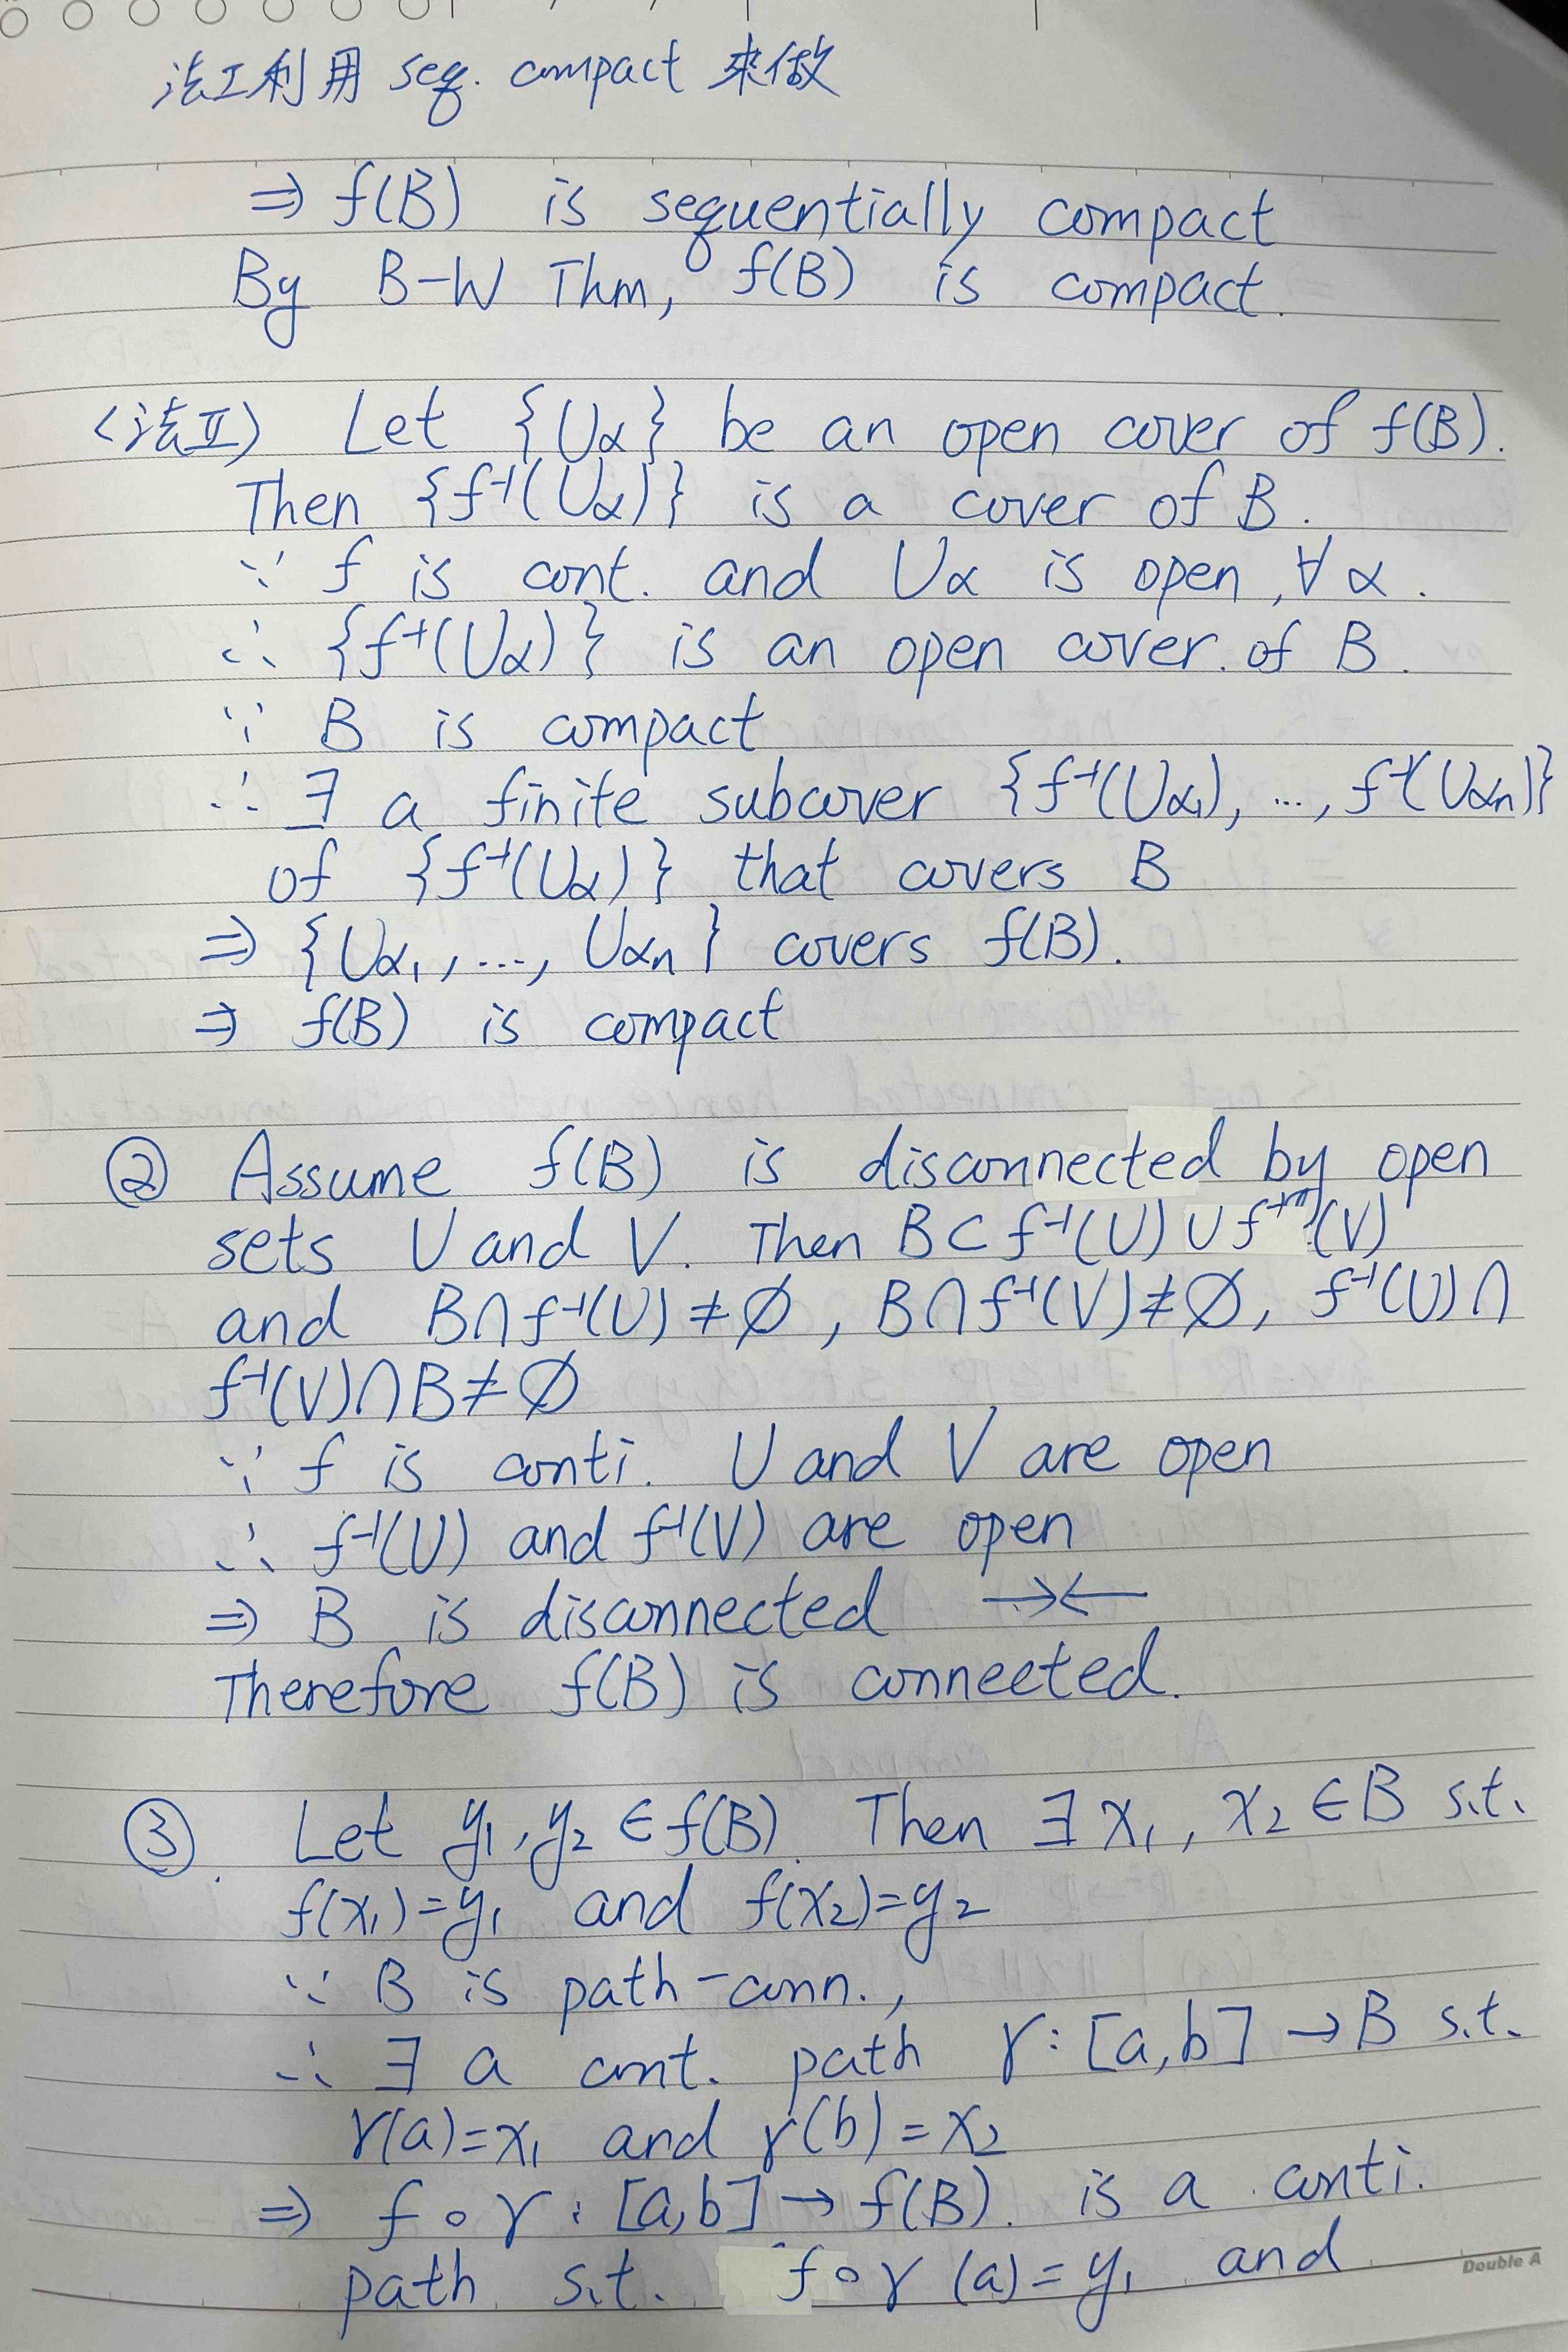 法I利用 seq. compact 來做
⇒ f(B) is sequentially compact
By B-W Thm, f(B) is compact.
<法II> Let {Uα} be an open cover of f(B).
Then {f⁻¹(Uα)} is a cover of B.
∵ f is cont. and Uα is open, ∀α.
∴ {f⁻¹(Uα)} is an open cover. of B.
∵ B is compact
∴ ∃ a finite subcover {f⁻¹(Uα₁), ..., f⁻¹(Uαₙ)}
of {f⁻¹(Uα)} that covers B
⇒ {Uα₁, ..., Uαₙ} covers f(B).
⇒ f(B) is compact
② Assume f(B) is disconnected by open
sets U and V. Then B⊂f⁻¹(U)∪f⁻¹(V)
and B∩f⁻¹(U)≠∅, B∩f⁻¹(V)≠∅, f⁻¹(U)∩
f⁻¹(V)∩B≠∅
∵ f is conti. U and V are open
∴ f⁻¹(U) and f⁻¹(V) are open
⇒ B is disconnected →←
Therefore f(B) is connected.
③. Let y₁, y₂ ∈ f(B). Then ∃ x₁, x₂ ∈ B s.t.
f(x₁)=y₁ and f(x₂)=y₂
∵ B is path-conn.,
∴ ∃ a cont. path γ: [a,b] → B s.t.
γ(a)=x₁ and γ(b)=x₂
⇒ f∘γ: [a,b] → f(B). is a conti.
path s.t. f∘γ (a)=y₁ and
Double A